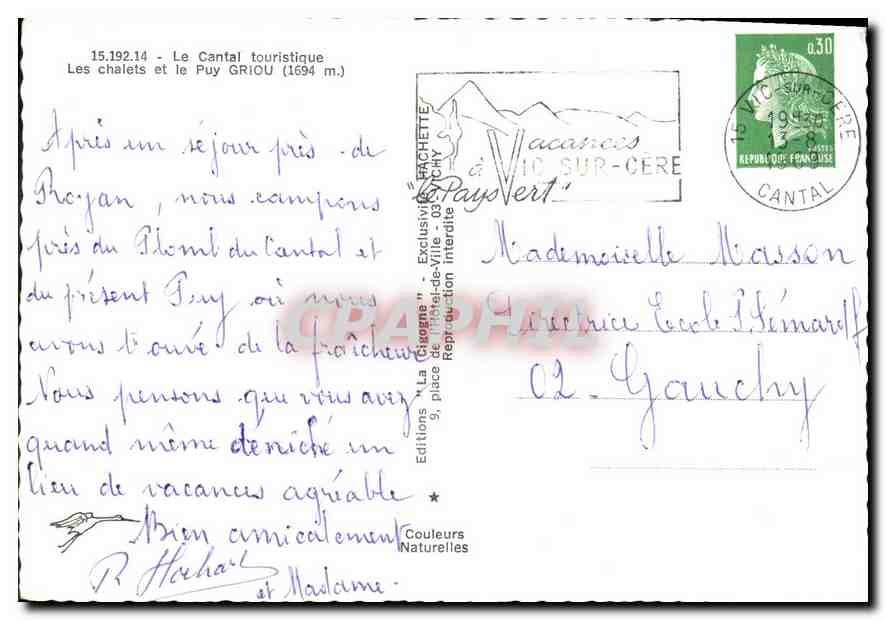 15.192.14 - Le Cantal touristique
Les chalets et le Puy GRIOU (1694 m.)
Après un séjour près de
Royan, nous campons
près du Plomb du Cantal et
du présent Puy où nous
avons trouvé de la fraîcheur
Nous pensons que vous avez
quand même déniché un
lieu de vacances agréable
Bien amicalement
et Madame.
Editions "La Cigogne" - Exclusivité HACHETTE
9, place de l'Hôtel-de-Ville - 03 VICHY
Reproduction interdite
Couleurs
Naturelles
Vacances
à VIC SUR-CÈRE
"le Pays Vert"
0,30
POSTES
REPUBLIQUE FRANÇAISE
15 VIC-SUR-CERE
13-8
CANTAL
Mademoiselle Masson
Directrice Ecole P. Sémard
02 - Gauchy
CPAPHIL